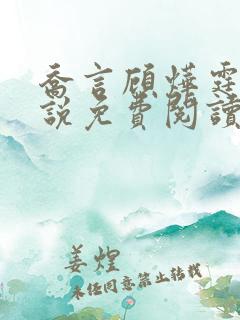 喬言顧燁霆
說免費閱讀
姜煌
未经同意禁止转载